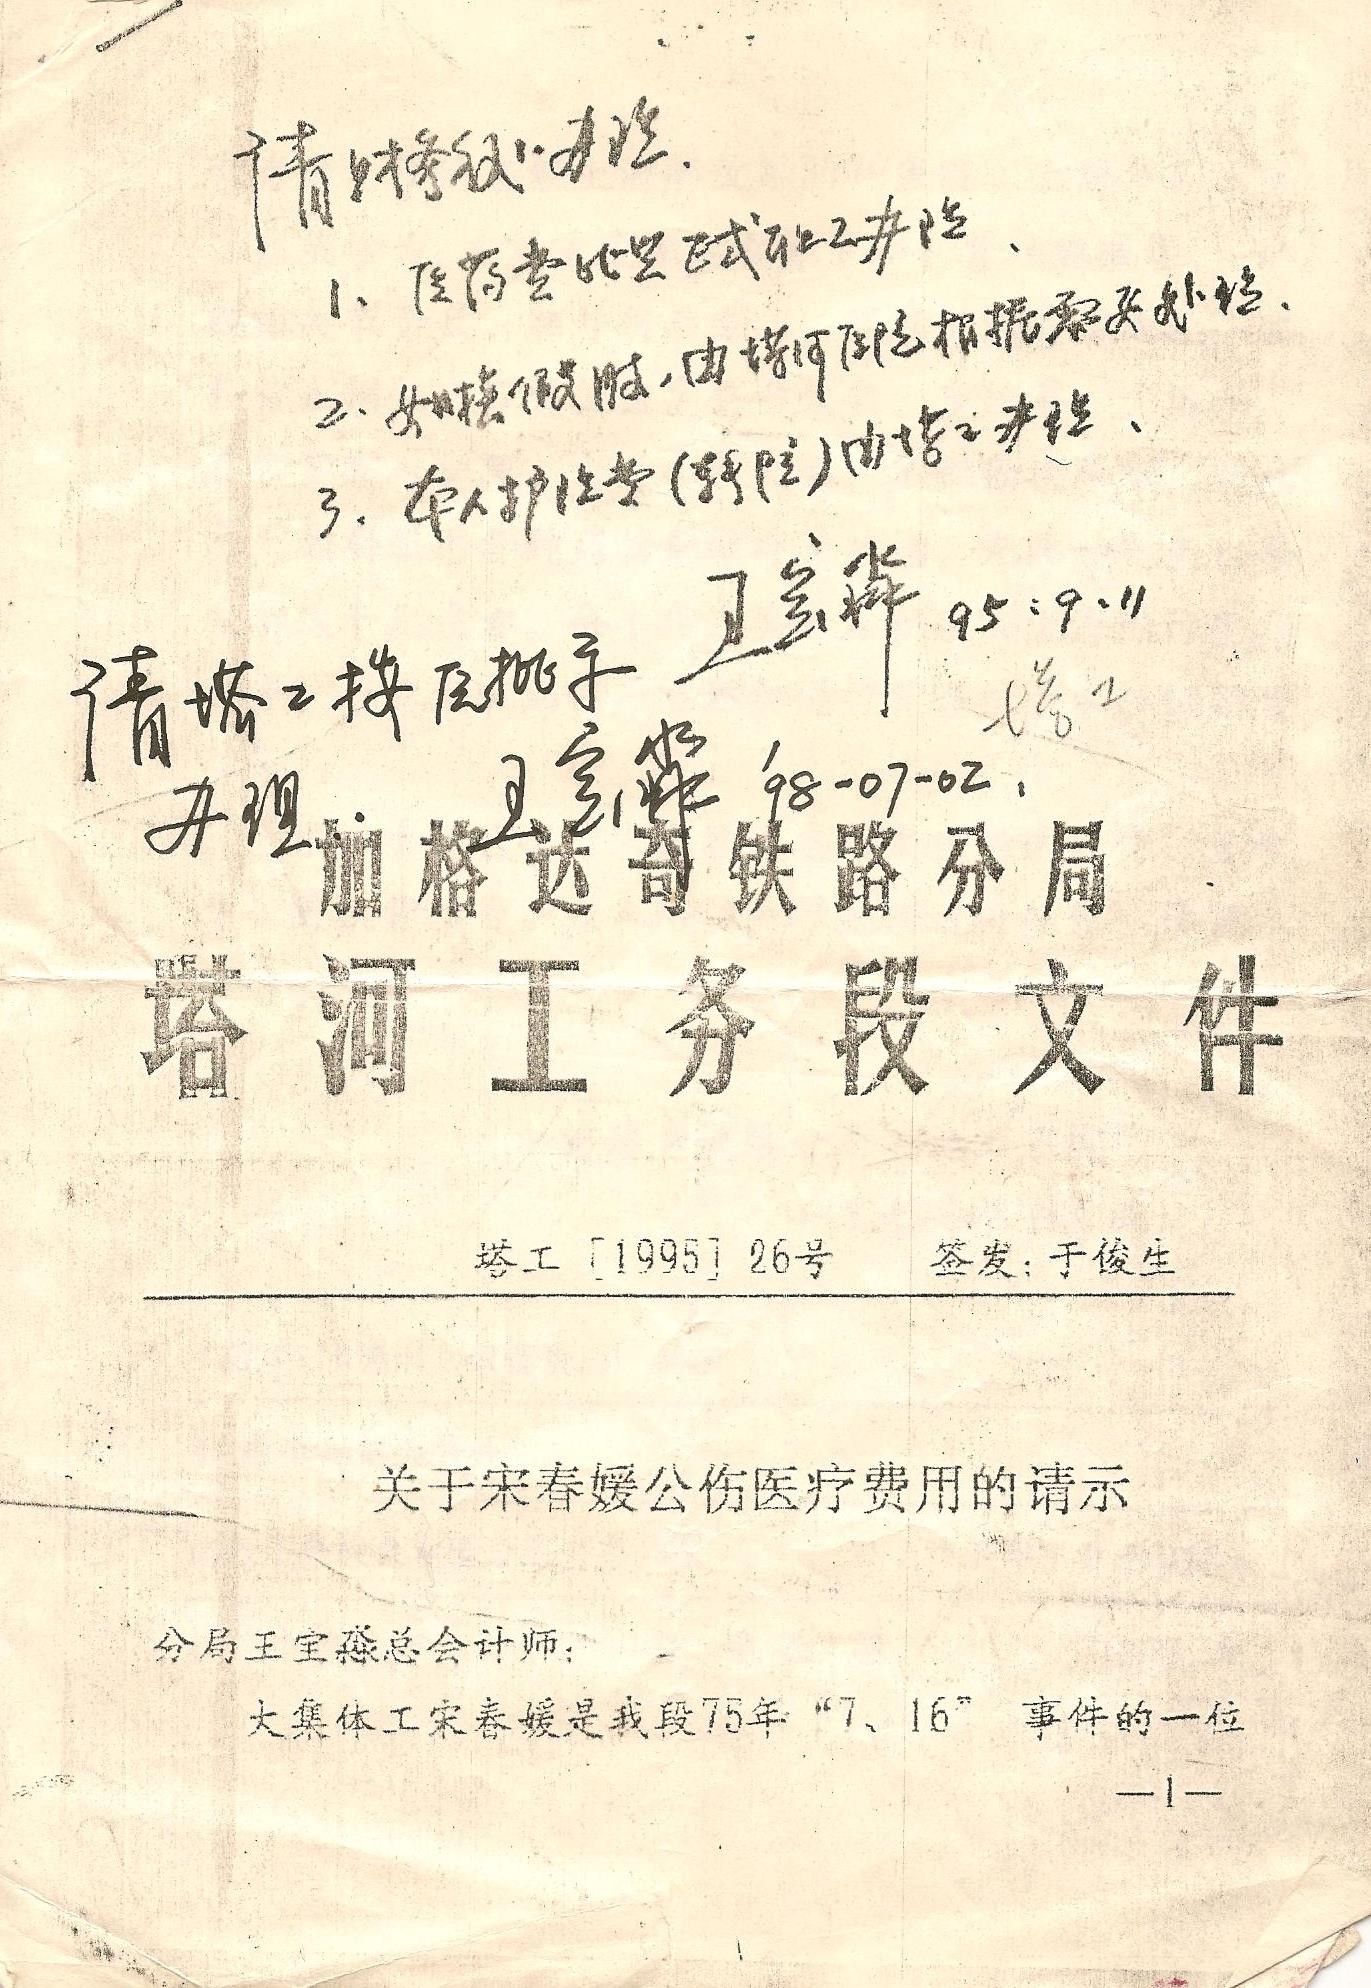 请财务级办理.
1、医药费比照正式职工办理、
2.如换假肢,由塔河医院根据需要处理、
3.本人护理费(转院)由塔工办理、
95.9.11
塔工
请塔工按原批示
办理. '98-07-02.
加格达奇铁路分局
塔河工务段文件
塔工[1995]26号 签发:于俊生
关于宋春媛公伤医疗费用的请示
分局王宝森总会计师:
大集体工宋春媛是我段75年“7、16” 事件的一位
—1—